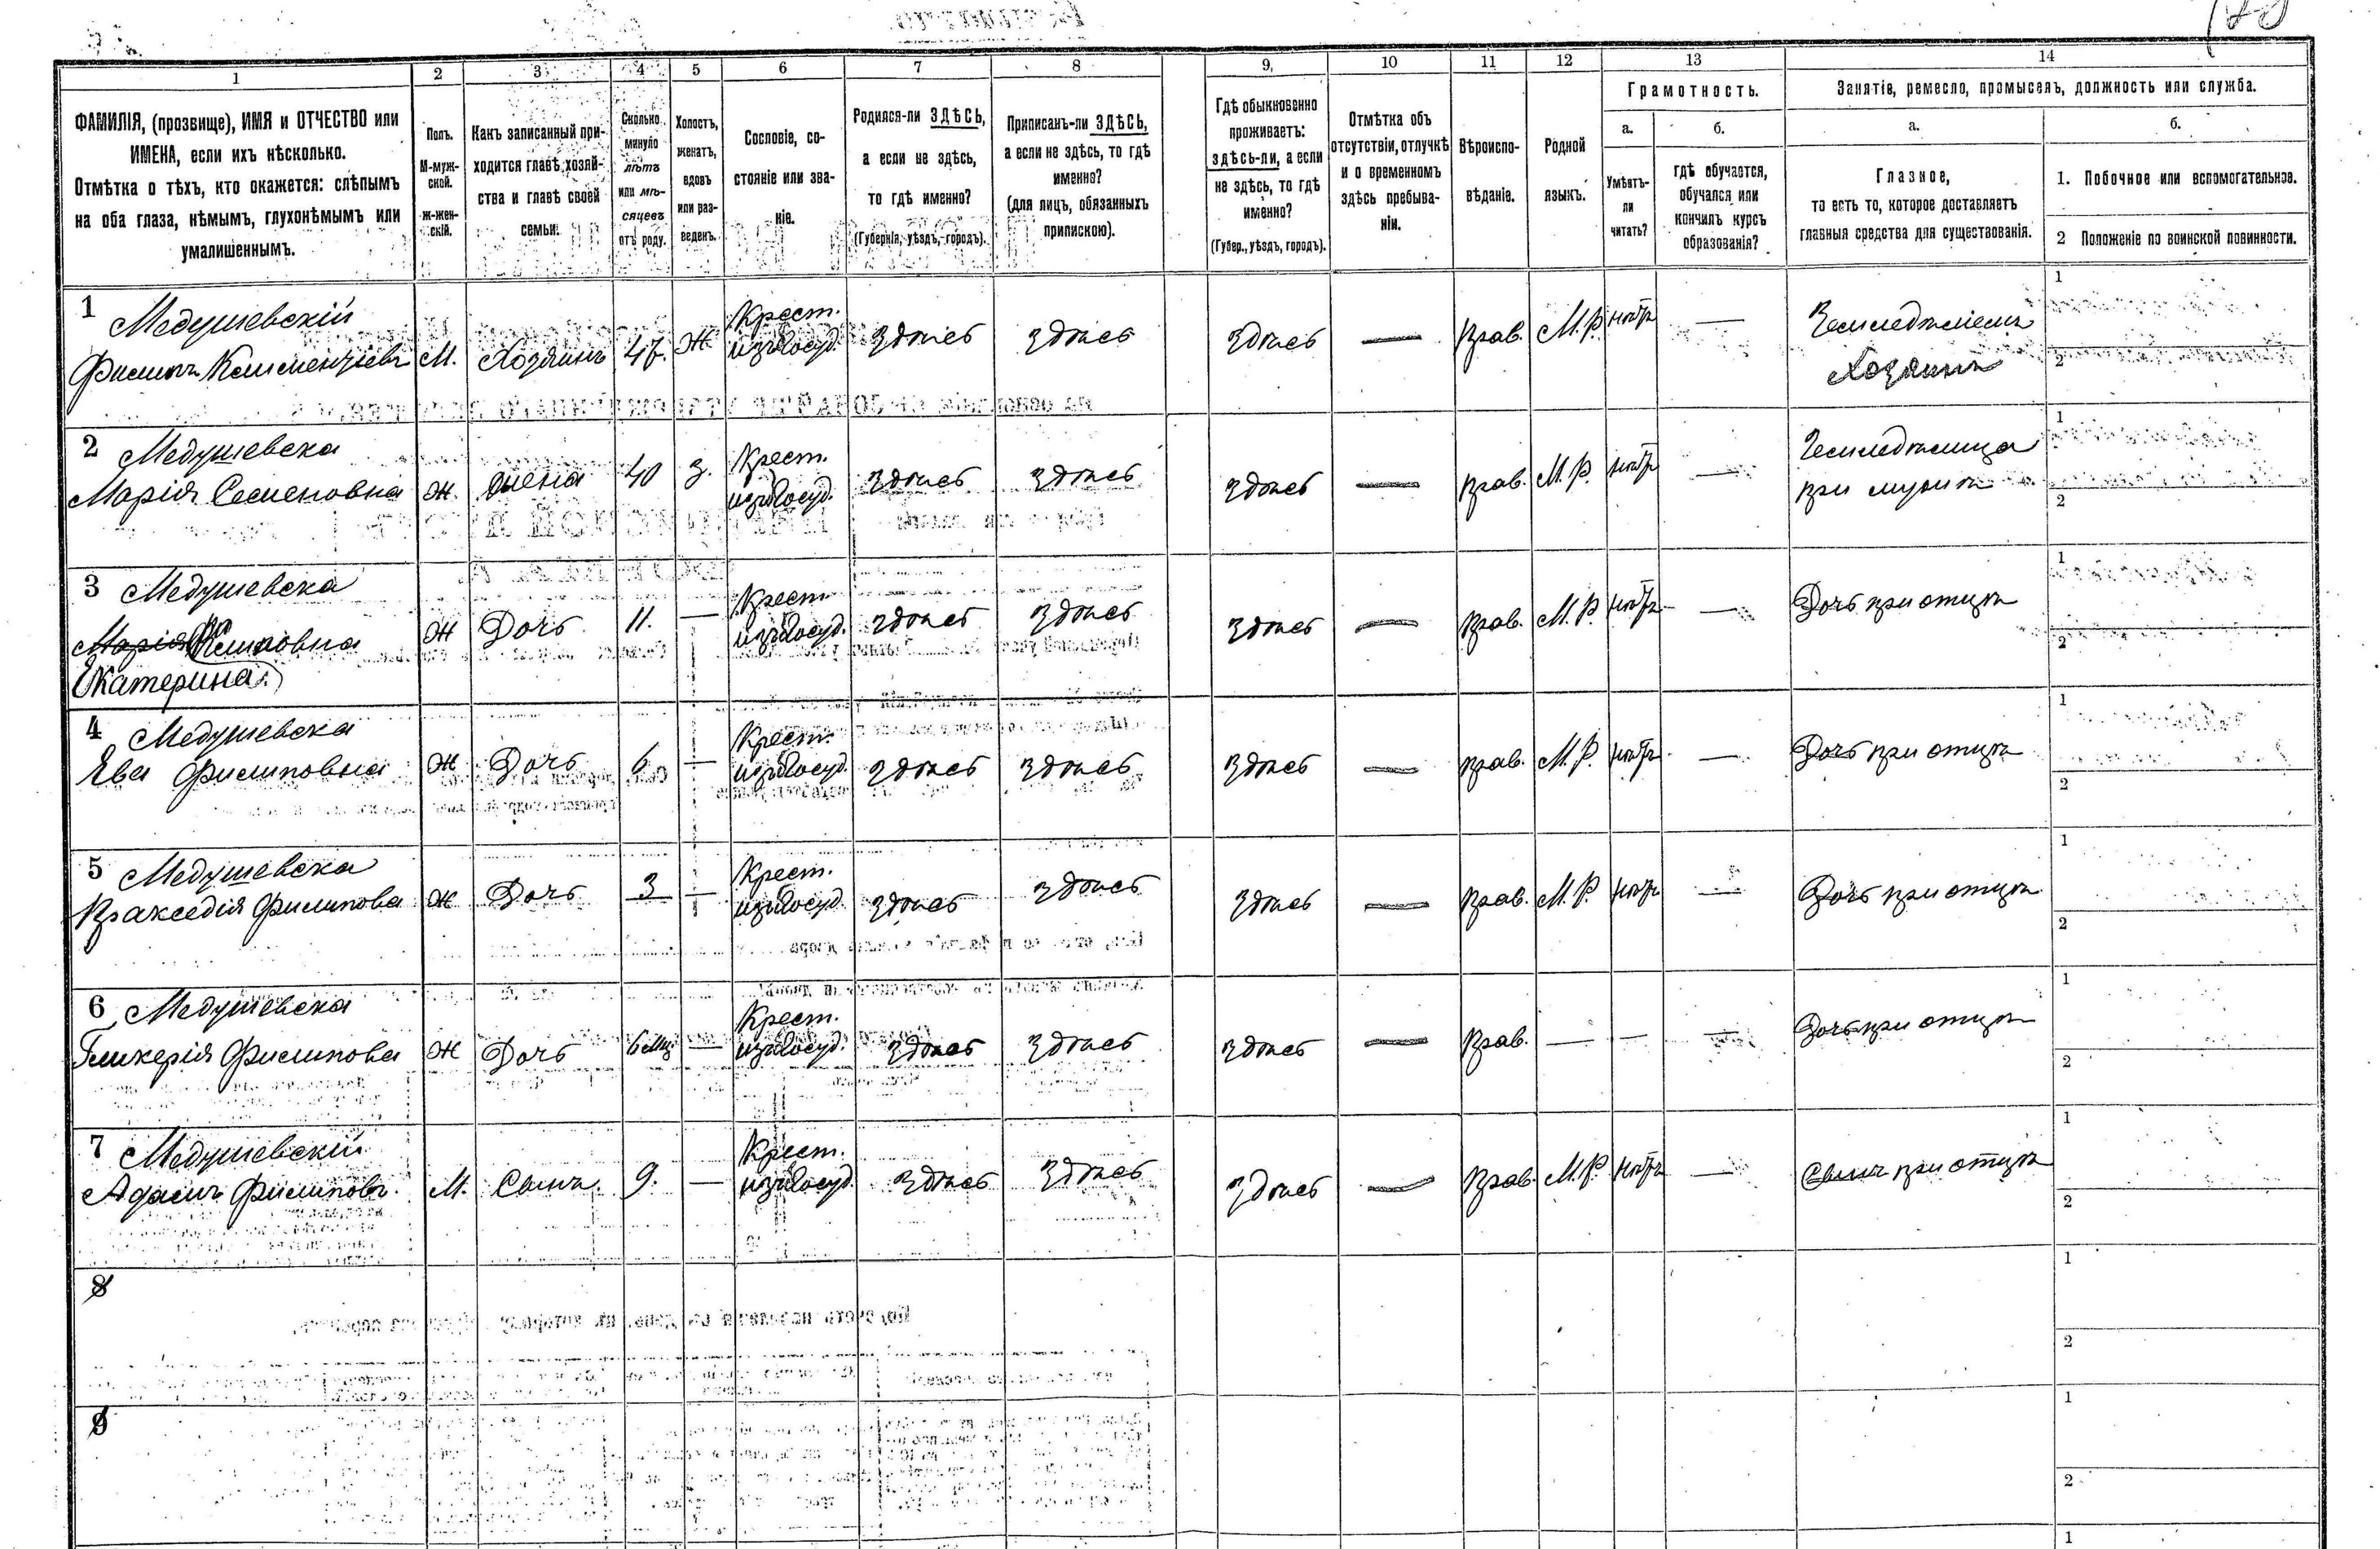 1
2
3
4
5
6
7
8
9
10
11
12
13
14
ФАМИЛІЯ, (прозвище), ИМЯ и ОТЧЕСТВО или
ИМЕНА, если ихъ нѣсколько.
Отмѣтка о тѣхъ, кто окажется: слѣпымъ
на оба глаза, нѣмымъ, глухонѣмымъ или
умалишеннымъ.
Полъ.
М-муж-
ской.
Ж-жен-
скій.
Какъ записанный при-
ходится главѣ хозяй-
ства и главѣ своей
семьи.
Сколько
минуло
лѣтъ
или мѣ-
сяцевъ
отъ роду.
Холостъ,
женатъ,
вдовъ
или раз-
веденъ.
Сословіе, со-
стояніе или зва-
ніе.
Родился-ли ЗДѢСЬ,
а если не здѣсь,
то гдѣ именно?
(Губернія, уѣздъ, городъ).
Приписанъ-ли ЗДѢСЬ,
а если не здѣсь, то гдѣ
именно?
(для лицъ, обязанныхъ
припискою).
Гдѣ обыкновенно
проживаетъ:
здѣсь-ли, а если
не здѣсь, то гдѣ
именно?
(Губер., уѣздъ, городъ).
Отмѣтка объ
отсутствіи, отлучкѣ
и о временномъ
здѣсь пребыва-
ніи.
Вѣроиспо-
вѣданіе.
Родной
языкъ.
Грамотность.
а.
Умѣетъ-
ли
читать?
б.
гдѣ обучается,
обучался или
кончилъ курсъ
образованія?
Занятіе, ремесло, промыселъ, должность или служба.
а.
Главное,
то есть то, которое доставляетъ
главныя средства для существованія.
б.
1. Побочное или вспомогательное.
2 Положеніе по воинской повинности.
1 Медушевскій
Филипъ Климентіевъ М. Хозяинъ 47. Ж Крест. изъ госуд. здѣсь здѣсь здѣсь — Прав. М.Р. нѣтъ — Земледѣлецъ 1
Хозяинъ 2
2 Медушевска
Марія Семеновна Ж. жена 40 З. Крест. изъ госуд. здѣсь здѣсь здѣсь — Прав. М.Р. нѣтъ — Земледѣлица 1
при мужѣ 2
3 Медушевска
Филиповна Ж Дочь 11. — Крест. изъ госуд. здѣсь здѣсь здѣсь — Прав. М.Р. нѣтъ — Дочь при отцѣ 1
Екатерина 2
4 Медушевска
Ева Филиповна Ж Дочь 6 — Крест. изъ госуд. здѣсь здѣсь здѣсь — Прав. М.Р. нѣтъ — Дочь при отцѣ 1
2
5 Медушевска
Пракседія Филипова Ж Дочь 3 — Крест. изъ госуд. здѣсь здѣсь здѣсь — Прав. М.Р. нѣтъ — Дочь при отцѣ 1
2
6 Медушевска
Гликерія Филипова Ж Дочь 6 мц — Крест. изъ госуд. здѣсь здѣсь здѣсь — Прав. — — — Дочь при отцѣ 1
2
7 Медушевскій
Адамъ Филиповъ. М. Сынъ 9. — Крест. изъ госуд. здѣсь здѣсь здѣсь — Прав. М.Р. нѣтъ — Сынъ при отцѣ 1
2
8 1
2
9 1
2
1